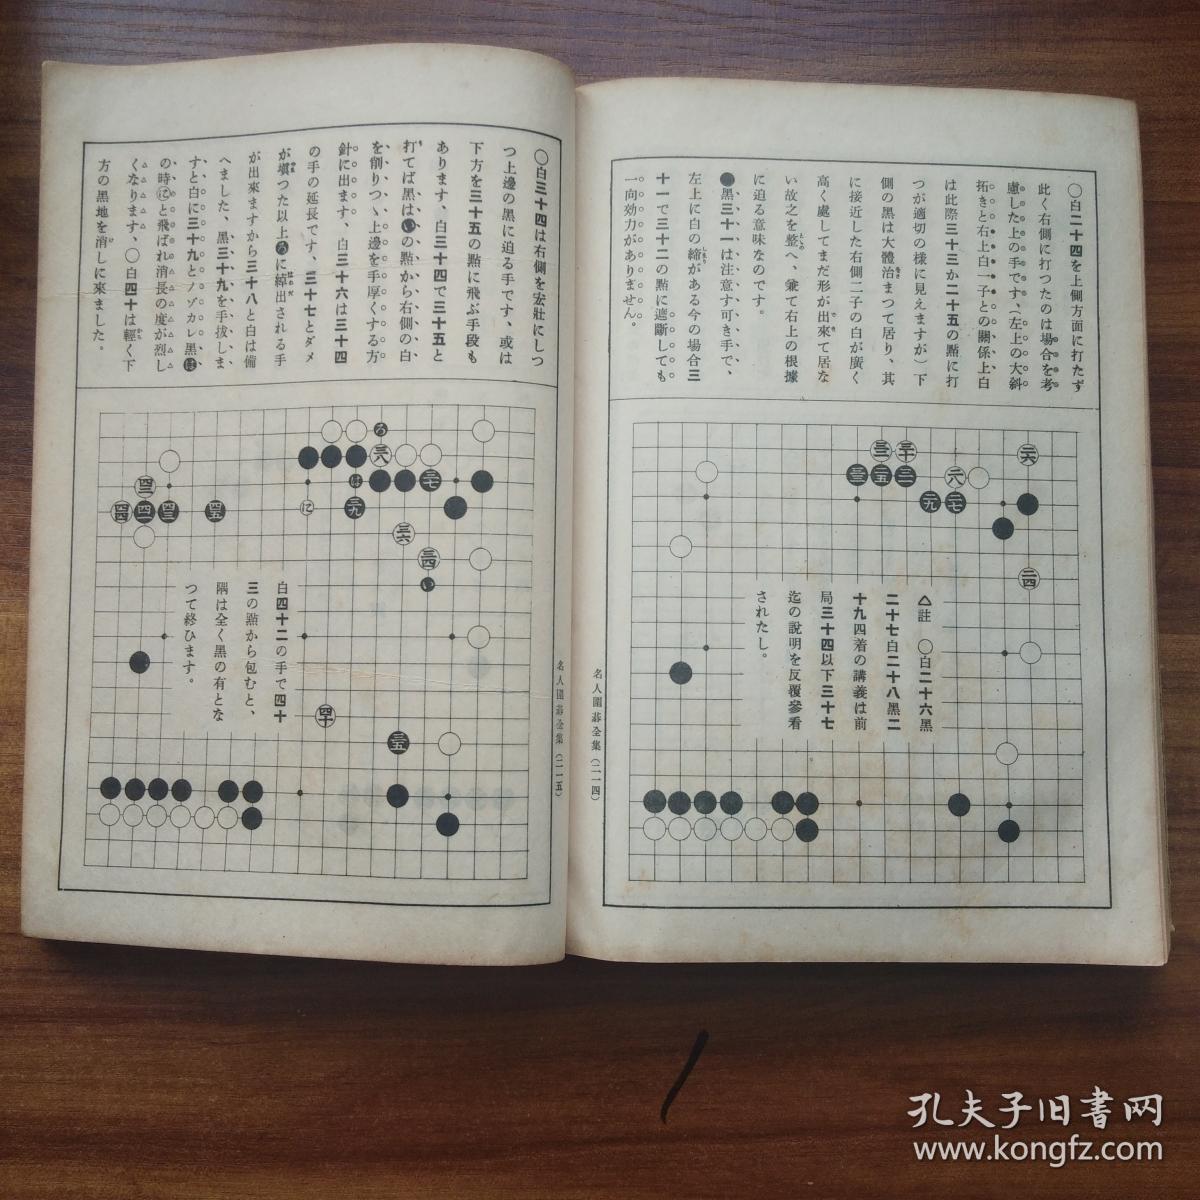 〇白二十四を上側方面に打たず
此く右側に打つたのは場合を考
慮した上の手です、(左上の大斜
拓きと右上白一子との關係上白
は此際三十三か二十五の點に打
つが適切の樣に見えますが)下
側の黑は大體治まつて居り、其
に接近した右側二子の白が廣く
高く處してまだ形が出來て居な
い故之を整へ、兼て右上の根據
に迫る意味なのです。
●黑三十一は注意す可き手で、
左上に白の締がある今の場合三
十一で三十二の點に遮斷しても
一向効力がありません。
二六
三二
三十
三三
二五
三一
二八
二九
二七
二四
△註 〇白二十六黑
二十七白二十八黑二
十九四着の講義は前
局三十四以下三十七
迄の說明を反覆參看
されたし。
名人圍碁全集(二一四)
〇白三十四は右側を宏壯にしつ
つ上邊の黑に迫る手です、或は
下方を三十五の點に飛ぶ手段も
あります、白三十四で三十五と
打てば黑はいの點から右側の白
を削りつゝ上邊を手厚くする方
針に出ます、白三十六は三十四
の手の延長です、三十七とダメ
が塡つた以上ろに綽出される手
が出來ますから三十八と白は備
へました、黑三十九を手拔しま
すと白に三十九とノゾカレ黑は
の時にと飛ばれ消長の度が烈し
くなります、〇白四十は輕く下
方の黑地を消しに來ました。
ろ
三八
は
三七
三九
に
三六
三四
い
四二
四四
四一
四三
四五
四十
三五
白四十二の手で四十
三の點から包むと、
隅は全く黑の有とな
つて終ひます。
名人圍碁全集(二一五)
孔夫子旧書网
www.kongfz.com